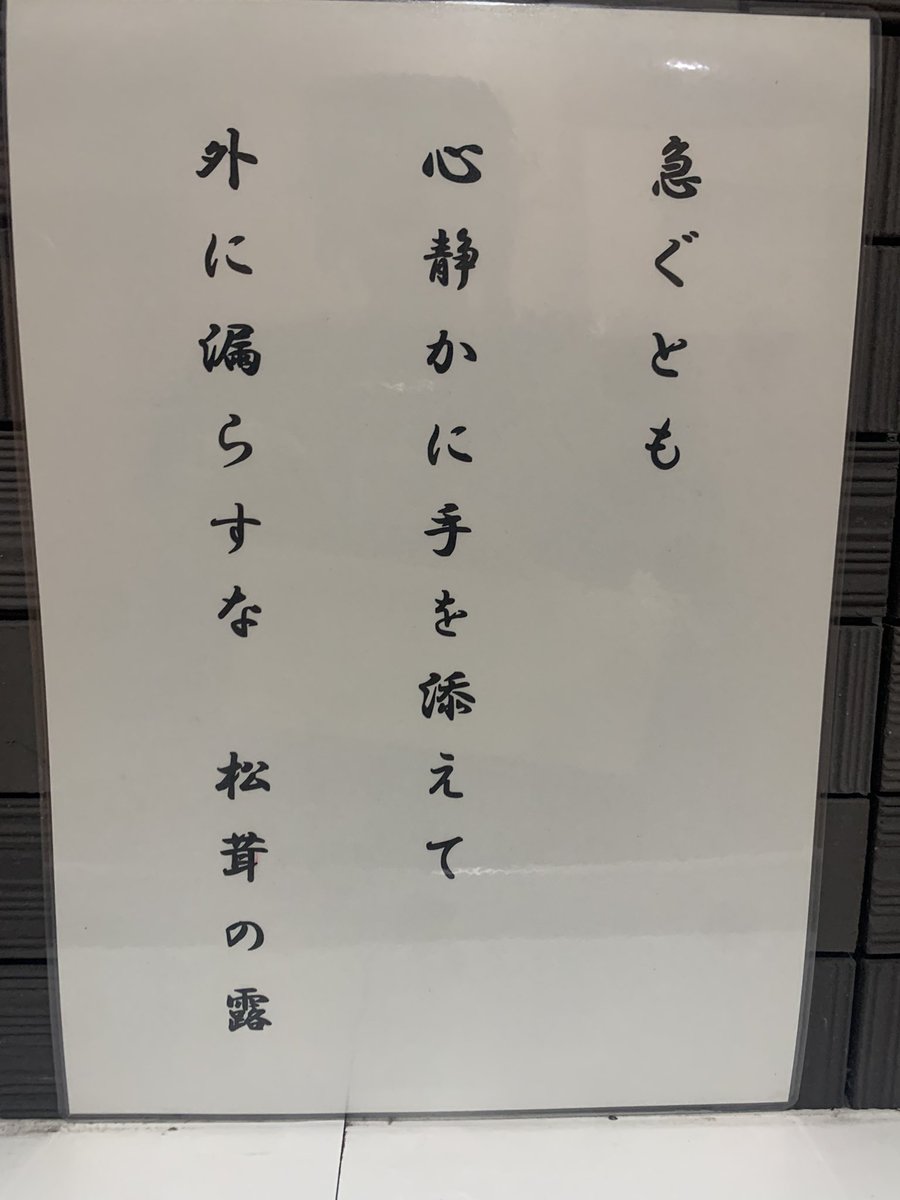 急ぐとも
心静かに手を添えて
外に漏らすな　松茸の露